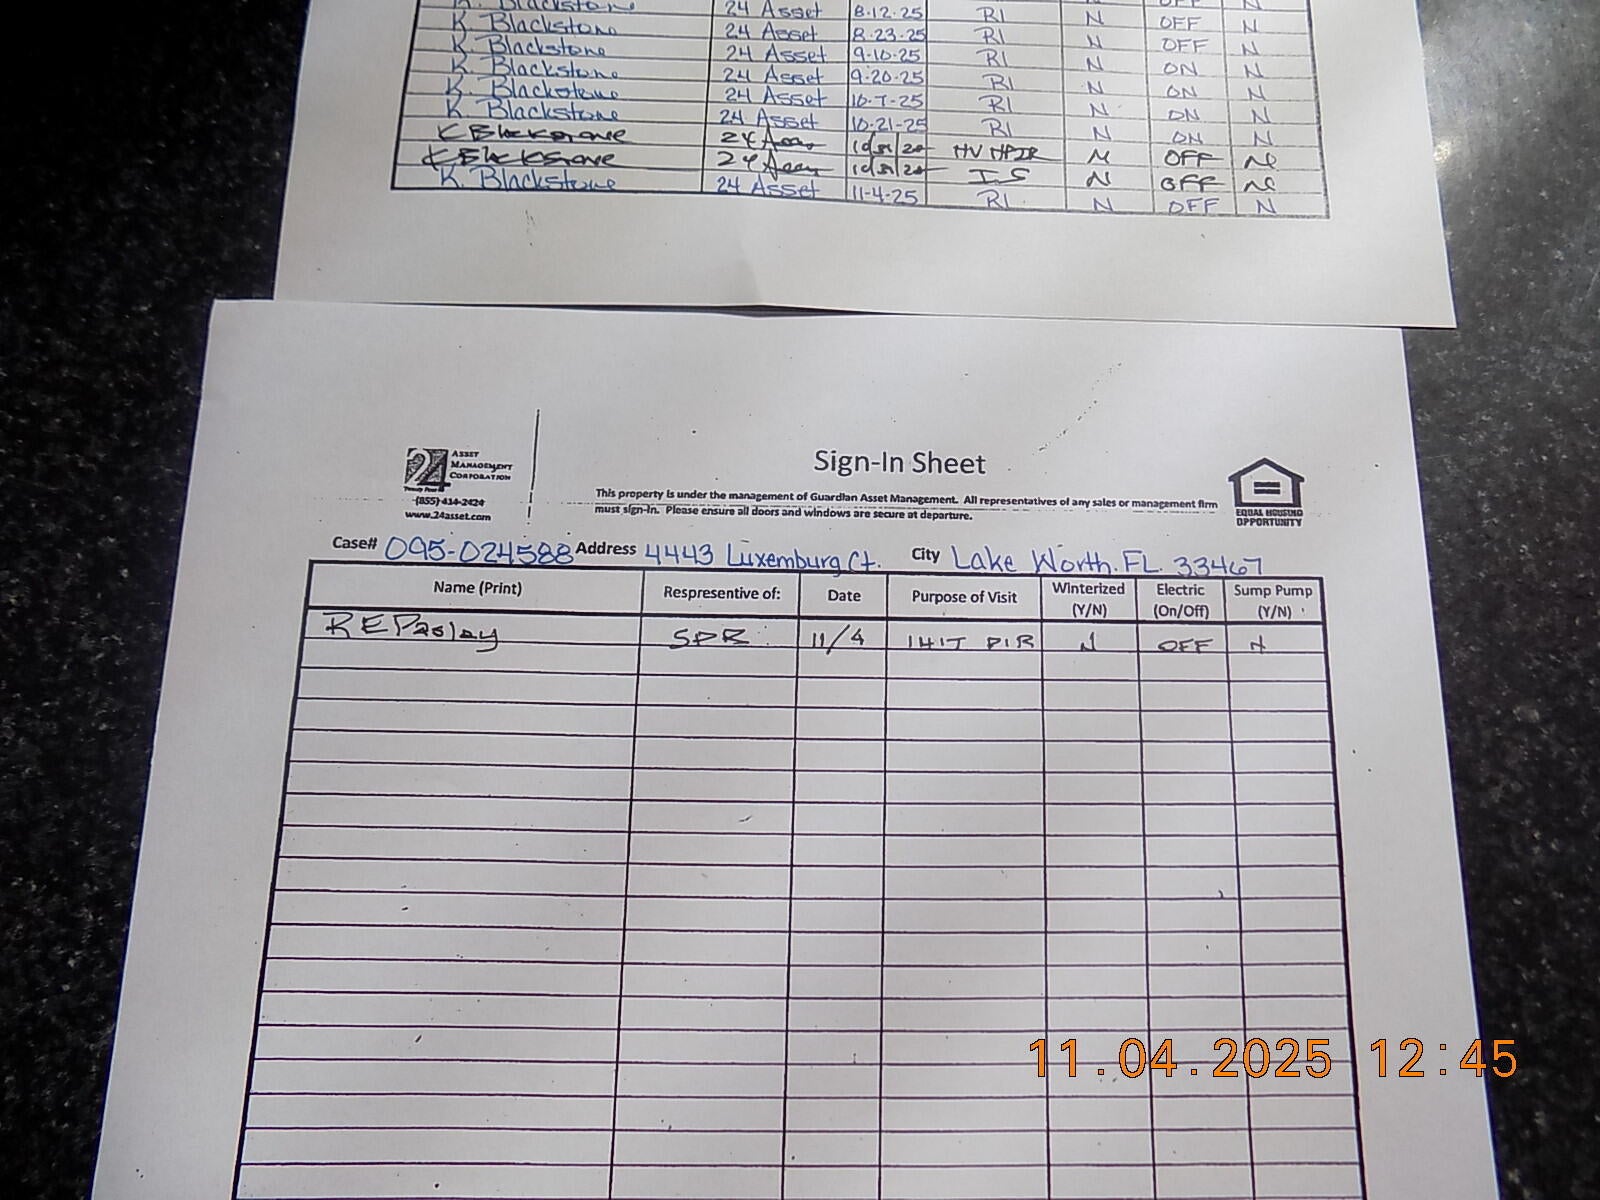 K. Blackstone 24 Asset 8-12-25 RI N OFF N
K. Blackstone 24 Asset 8-23-25 RI N OFF N
K. Blackstone 24 Asset 9-10-25 RI N OFF N
K. Blackstone 24 Asset 9-20-25 RI N ON N
K. Blackstone 24 Asset 10-7-25 RI N ON N
K. Blackstone 24 Asset 10-21-25 RI N ON N
K Blackstone 24 HV HPIR N ON N
K Blackstone 24 IS N OFF
K. Blackstone 24 Asset 11-4-25 RI N OFF N
24 ASSET MANAGEMENT CORPORATION
Twenty Four
(855) 414-2424
www.24asset.com
Sign-In Sheet
This property is under the management of Guardian Asset Management. All representatives of any sales or management firm
must sign-in. Please ensure all doors and windows are secure at departure.
EQUAL HOUSING
OPPORTUNITY
Case# 095-024588 Address 4443 Luxemburg Ct. City Lake Worth. FL. 33467
Name (Print) Respresentive of: Date Purpose of Visit Winterized (Y/N) Electric (On/Off) Sump Pump (Y/N)
R E Paslay SPR 11/4 INIT PIR N OFF N
11.04.2025 12:45